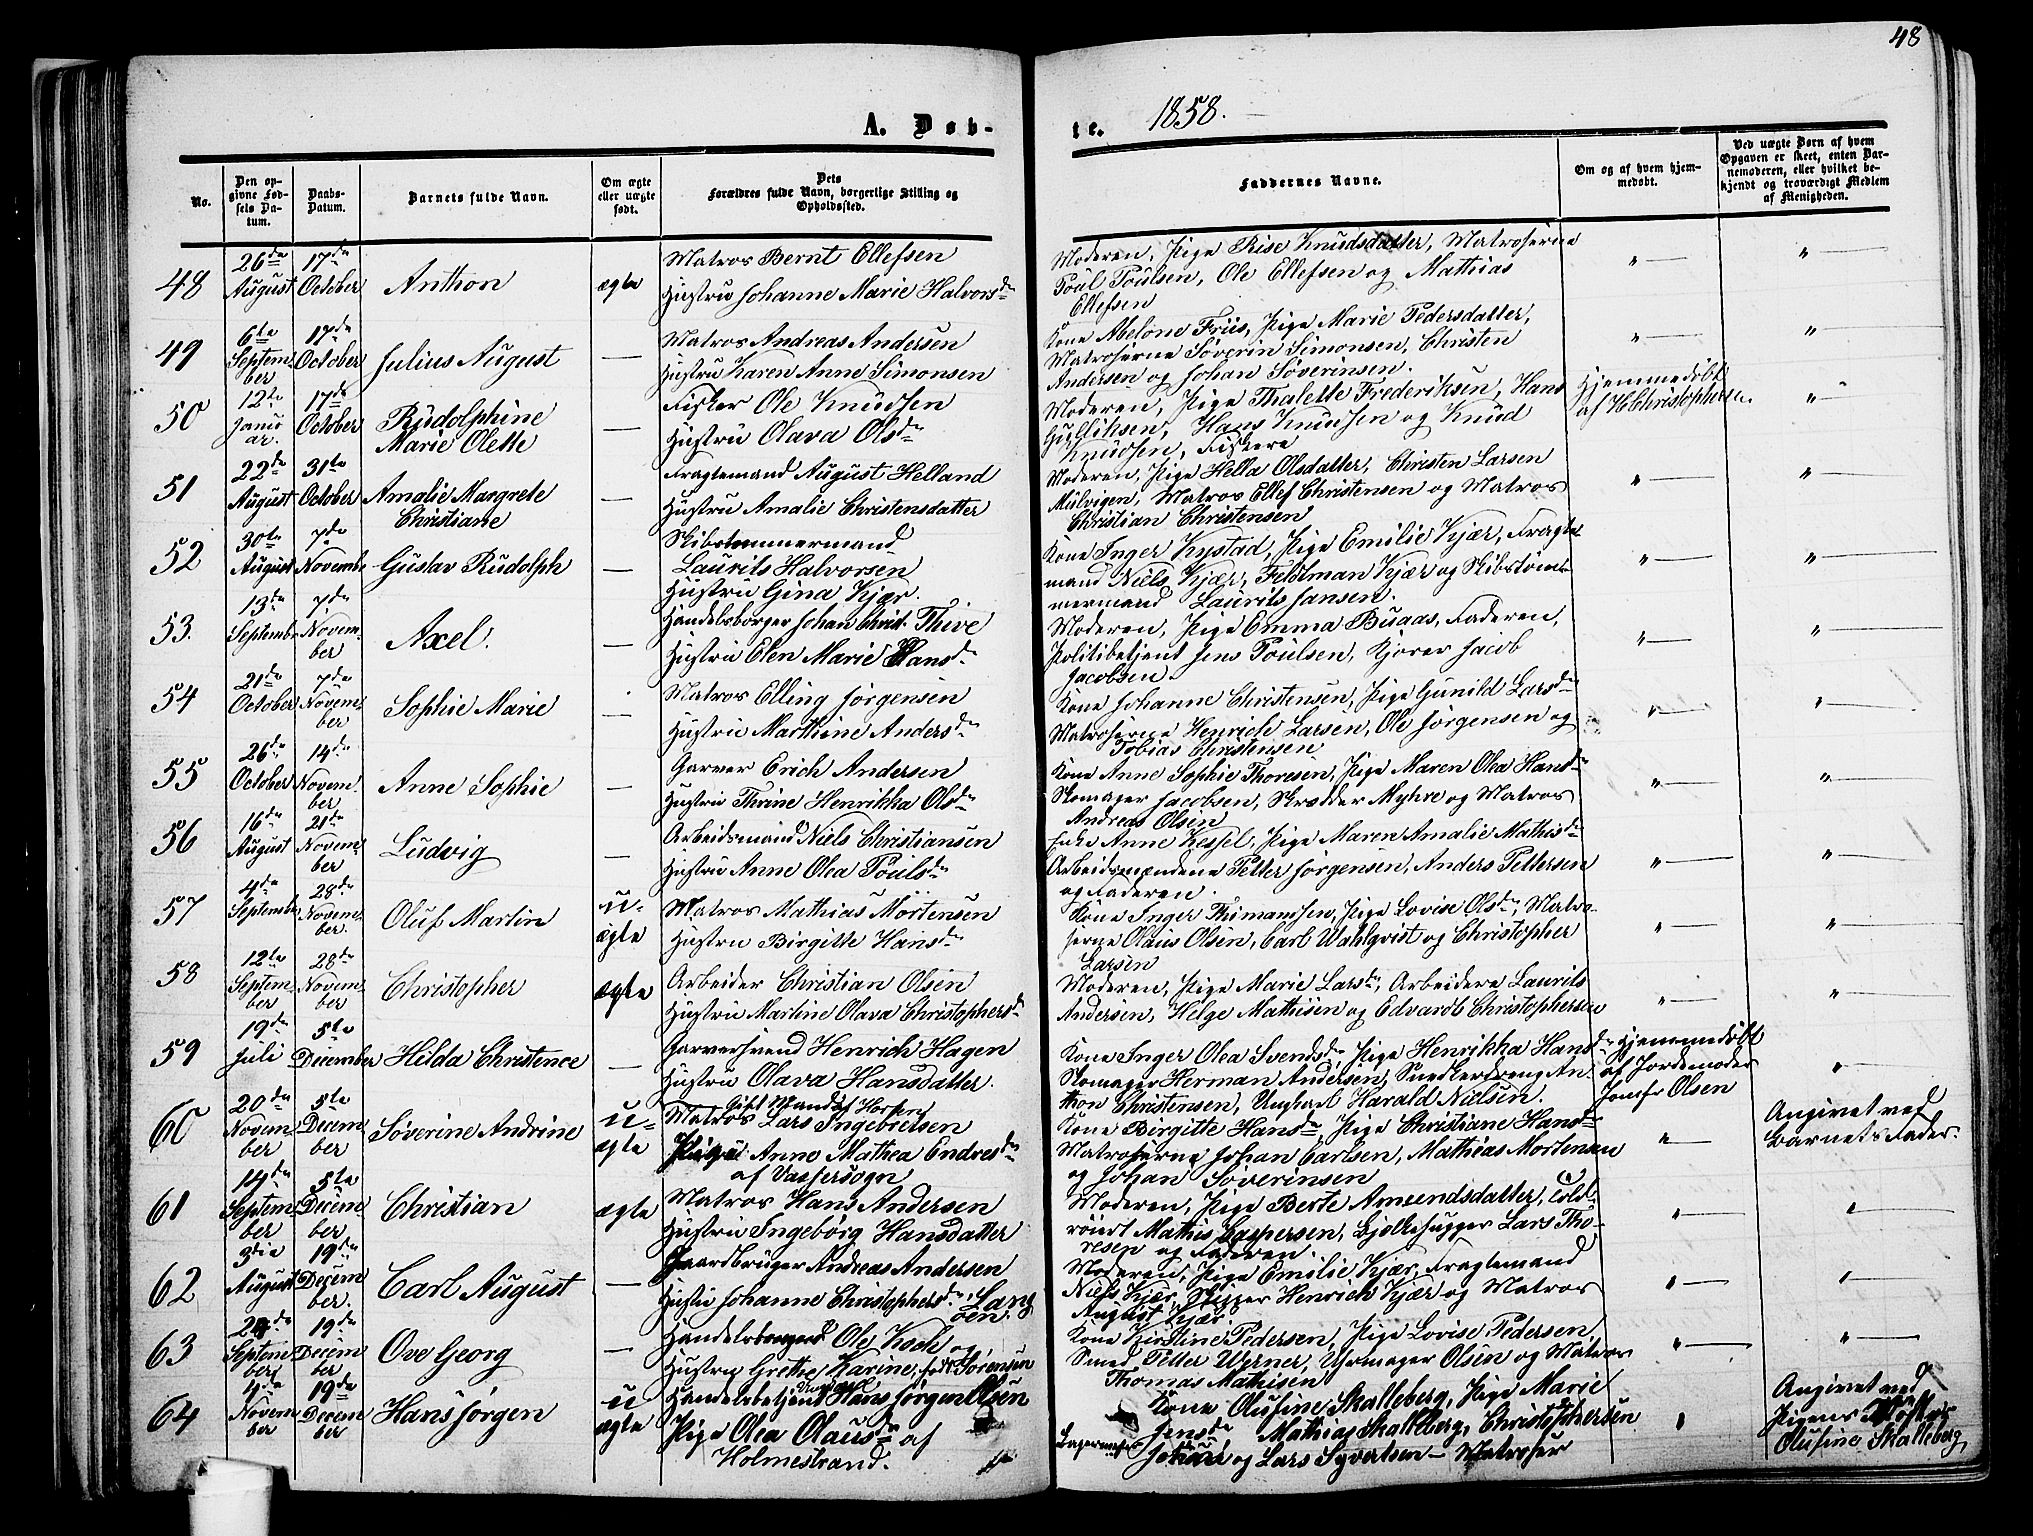 48
A. Døb-
te. 1858.
No.
Den opgivne Fødsels Datum.
Daabs-Datum.
Barnets fulde Navn.
Om ægte eller uægte født.
Dets Forældres fulde Navn, borgerlige Stilling og Opholdssted.
Faddernes Navne.
Om og af hvem hjemmedøbt.
Ved uægte Børn af hvem Opgaven er skeet, enten Barnemoderen, eller hvilket bekjendt og troværdigt Medlem af Menigheden.
48 26de August 17de October Anthon ægte
Matros Bernt Ellefsen
Hustru Johanne Marie Halvorsdr
Moderen, Pige Rise Knudsdatter, Matroserne
Poul Poulsen, Ole Ellefsen og Mathias
Ellefsen
49 6te September 17de October Julius August —
Matros Andreas Andersen
Hustru Karen Anne Simonsen
Kone Abelone Friis, Pige Marie Pedersdatter,
Matroserne Søverin Simonsen, Christen
Andersen og Johan Søverinsen.
50 12te Januar. 17de October Rudolphine Marie Olette —
Fisker Ole Knudsen
Hustru Olava Olsdr
Moderen, Pige Thalette Frederiksen, Hans
Gulliksen, Hans Knudsen og Knud
Knudsen, Fiskere
Hjemmedøbt
af H Christophersen.
51 22de August 31te October Amalie Margrete Christiane —
Fragtemand August Helland
Hustru Amalie Christensdatter
Moderen, Pige Hella Olsdatter, Christen Larsen
Mulvigen, Matros Ellef Christensen og Matros
Christian Christensen
52 30te August 7de Novembe Gustav Rudolph —
Skibstømmermand
Laurits Halvorsen
Hustru Gina Kjær.
Kone Inger Kystad, Pige Emilie Kjær, Fragte
mand Niels Kjær, Feldtman Kjær og Skibstøm
mermand Laurits Jansen.
53. 13de Septembr 7de November Axel. —
Handelsborger Johan Christ. Thive
Hustru Elen Marie Hansdr
Moderen, Pige Emma Buaas, Faderen,
Politibetjent Jens Poulsen, Kjører Jacob
Jacobsen.
54 21de October 7de November Sophie Marie —
Matros Elling Jørgensen
Hustru Marthine Andersdr
Kone Johanne Christensen, Pige Gunild Larsdr
Matroserne Henrich Larsen, Ole Jørgensen og
Tobias Christensen
55 26de October 14de November. Anne Sophie —
Garver Erich Andersen
Hustru Thrine Henrikka Olsdr
Kone Anne Sophie Thoresen, Pige Maren Olea Hansdr
Skomager Jacobsen, Skrædder Myhre og Matros
Andreas Olsen
56 16de August 21de November Ludvig —
Arbeidsmand Niels Christiansen
Hustru Anne Olea Poulsdr
Enke Anne Kessel, Pige Maren Amalie Mathisdr
Arbeidsmændene Petter Jørgensen, Anders Pettersen
og Faderen.
57 4de Septembr 28de November. Oluf Martin u-ægte
Matros Mathias Mortensen
Hustru Birgitte Hansdr
Kone Inger Thimandsen, Pige Lovise Olsdr, Matro-
serne Olaus Olsen, Carl Wahlqvist og Christopher
Larsen
58 12te September 28de November Christopher ægte
Arbeider Christian Olsen
Hustru Martine Olava Christophersdr
Moderen, Pige Marie Larsdr, Arbeidere Laurits
Andersen, Helge Mathisen og Edvardt Christophersen
59 19de Juli 5te December Hilda Christence —
Garversvend Henrich Hagen
Hustru Olava Hansdatter.
Kone Inger Olea Svendsdr, Pige Henrikka Hansdr
Skomager Herman Andersen, Snedkerdreng An-
thon Christensen, Ungkarl Harald Nielsen.
Hjemmedøbt
af Jordemoder
Jomfr Olsen
60 20de November 5te December Søverine Andrine u-ægte
Gift Mand af Horten
Matros Lars Ingebretsen
Pige Anne Mathea Endresdr
af Vassersogn
Kone Birgitte Hansdr, Pige Christiane Hansdr
Matroserne Johan Carlsen, Mathias Mortensen
og Johan Søverinsen
Angivet ved
Barnets Fader.
61 14de September 5te December Christian ægte
Matros Hans Andersen
Hustru Ingeborg Hansdatter
Moderen, Pige Berte Amundsdatter, Told-
røiert Mathis Caspersen, Bjelkehugger Lars Tho-
resen og Faderen.
62 3die August 19de December. Carl August —
Gaardbruger Andreas Andersen
Hustru Johanne Christophersdr, Langøen.
Moderen, Pige Emilie Kjær, Fragtemand
Niels Kjær, Skipper Henrich Kjær og Matros
August Kjær.
63 September 19de December Ove Georg —
Ole Koch og
Hustru Grethe Karine, født Sørensen
Kone Kirstine Pedersen, Pige Lovise Pedersen,
Smed Petter Werner, Uhrmager Olsen og Matros
Thomas Mathisen
64 4de November 19de December Hans Jørgen u ægte
Ungkarl
Handelsbetjent Hans Jørgen Olsen
Pige Olea Olausdr af
Holmestrand.
Kone Olufine Skalleberg, Pige Marie
Jensdr Mathias Skalleberg, Christophersen
og Lars Syvertsen — Matroser
Angivet ved
Pigens Søster
Olufine Skalleberg